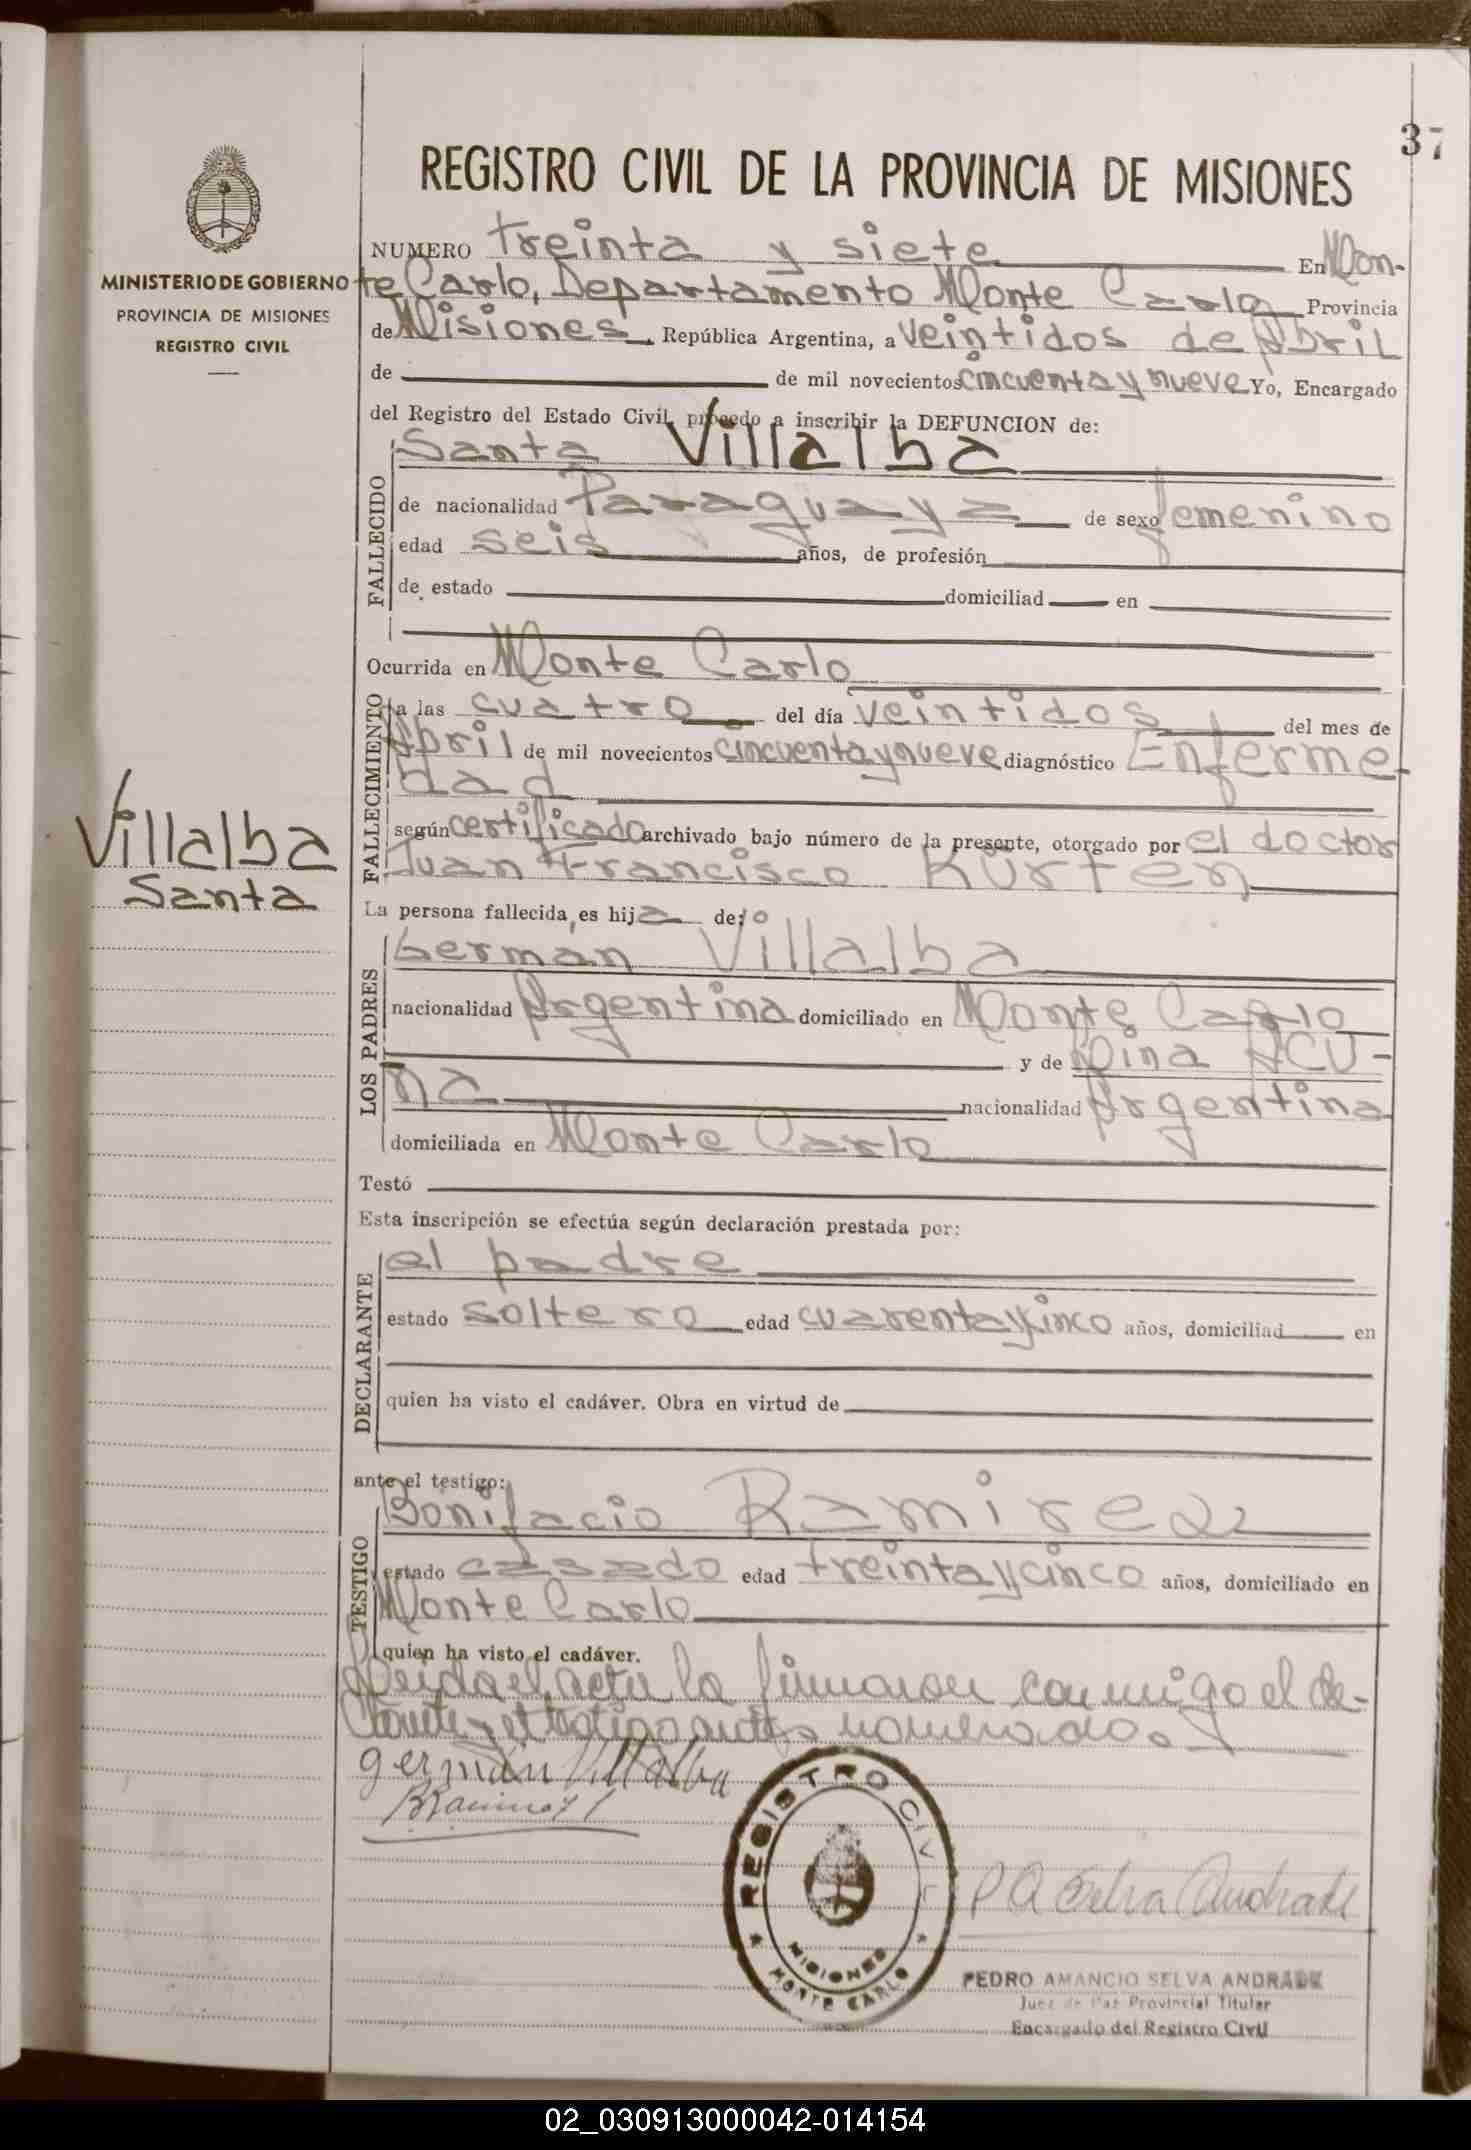 37
REGISTRO CIVIL DE LA PROVINCIA DE MISIONES
MINISTERIO DE GOBIERNO
PROVINCIA DE MISIONES
REGISTRO CIVIL
NUMERO treinta y siete En Mon-
te Carlo, Departamento Monte Carlo Provincia
de Misiones República Argentina, a veintidos de Abril
de de mil novecientos cincuenta y nueve Yo, Encargado
del Registro del Estado Civil, procedo a inscribir la DEFUNCION de:
FALLECIDO
Santa Villalba
de nacionalidad Paraguaya de sexo femenino
edad seis años, de profesión
de estado domiciliad en
Ocurrida en Monte Carlo
FALLECIMIENTO
a las cuatro del día veintidos del mes de
Abril de mil novecientos cincuenta y nueve diagnóstico Enferme-
dad
según certificado archivado bajo número de la presente, otorgado por el doctor
Juan Francisco Kürten
Villalba
Santa
La persona fallecida, es hija de:
LOS PADRES
German Villalba
nacionalidad Argentina domiciliado en Monte Carlo
y de ACU-
ña nacionalidad Argentina
domiciliada en Monte Carlo
Testó
Esta inscripción se efectúa según declaración prestada por:
DECLARANTE
el padre
estado soltero edad cuarenta y cinco años, domiciliad en
quien ha visto el cadáver. Obra en virtud de
ante el testigo:
TESTIGO
Bonifacio Ramirez
estado casado edad treinta y cinco años, domiciliado en
Monte Carlo
quien ha visto el cadáver.
Leida el acta la firmaron conmigo el de-
y el testigo antes nomenado.
german Villalba
REGISTRO CIVIL
MISIONES
MONTE CARLO
P A Selva Andrade
PEDRO AMANCIO SELVA ANDRADE
Juez de Paz Provincial Titular
Encargado del Registro Civil
02_030913000042-014154